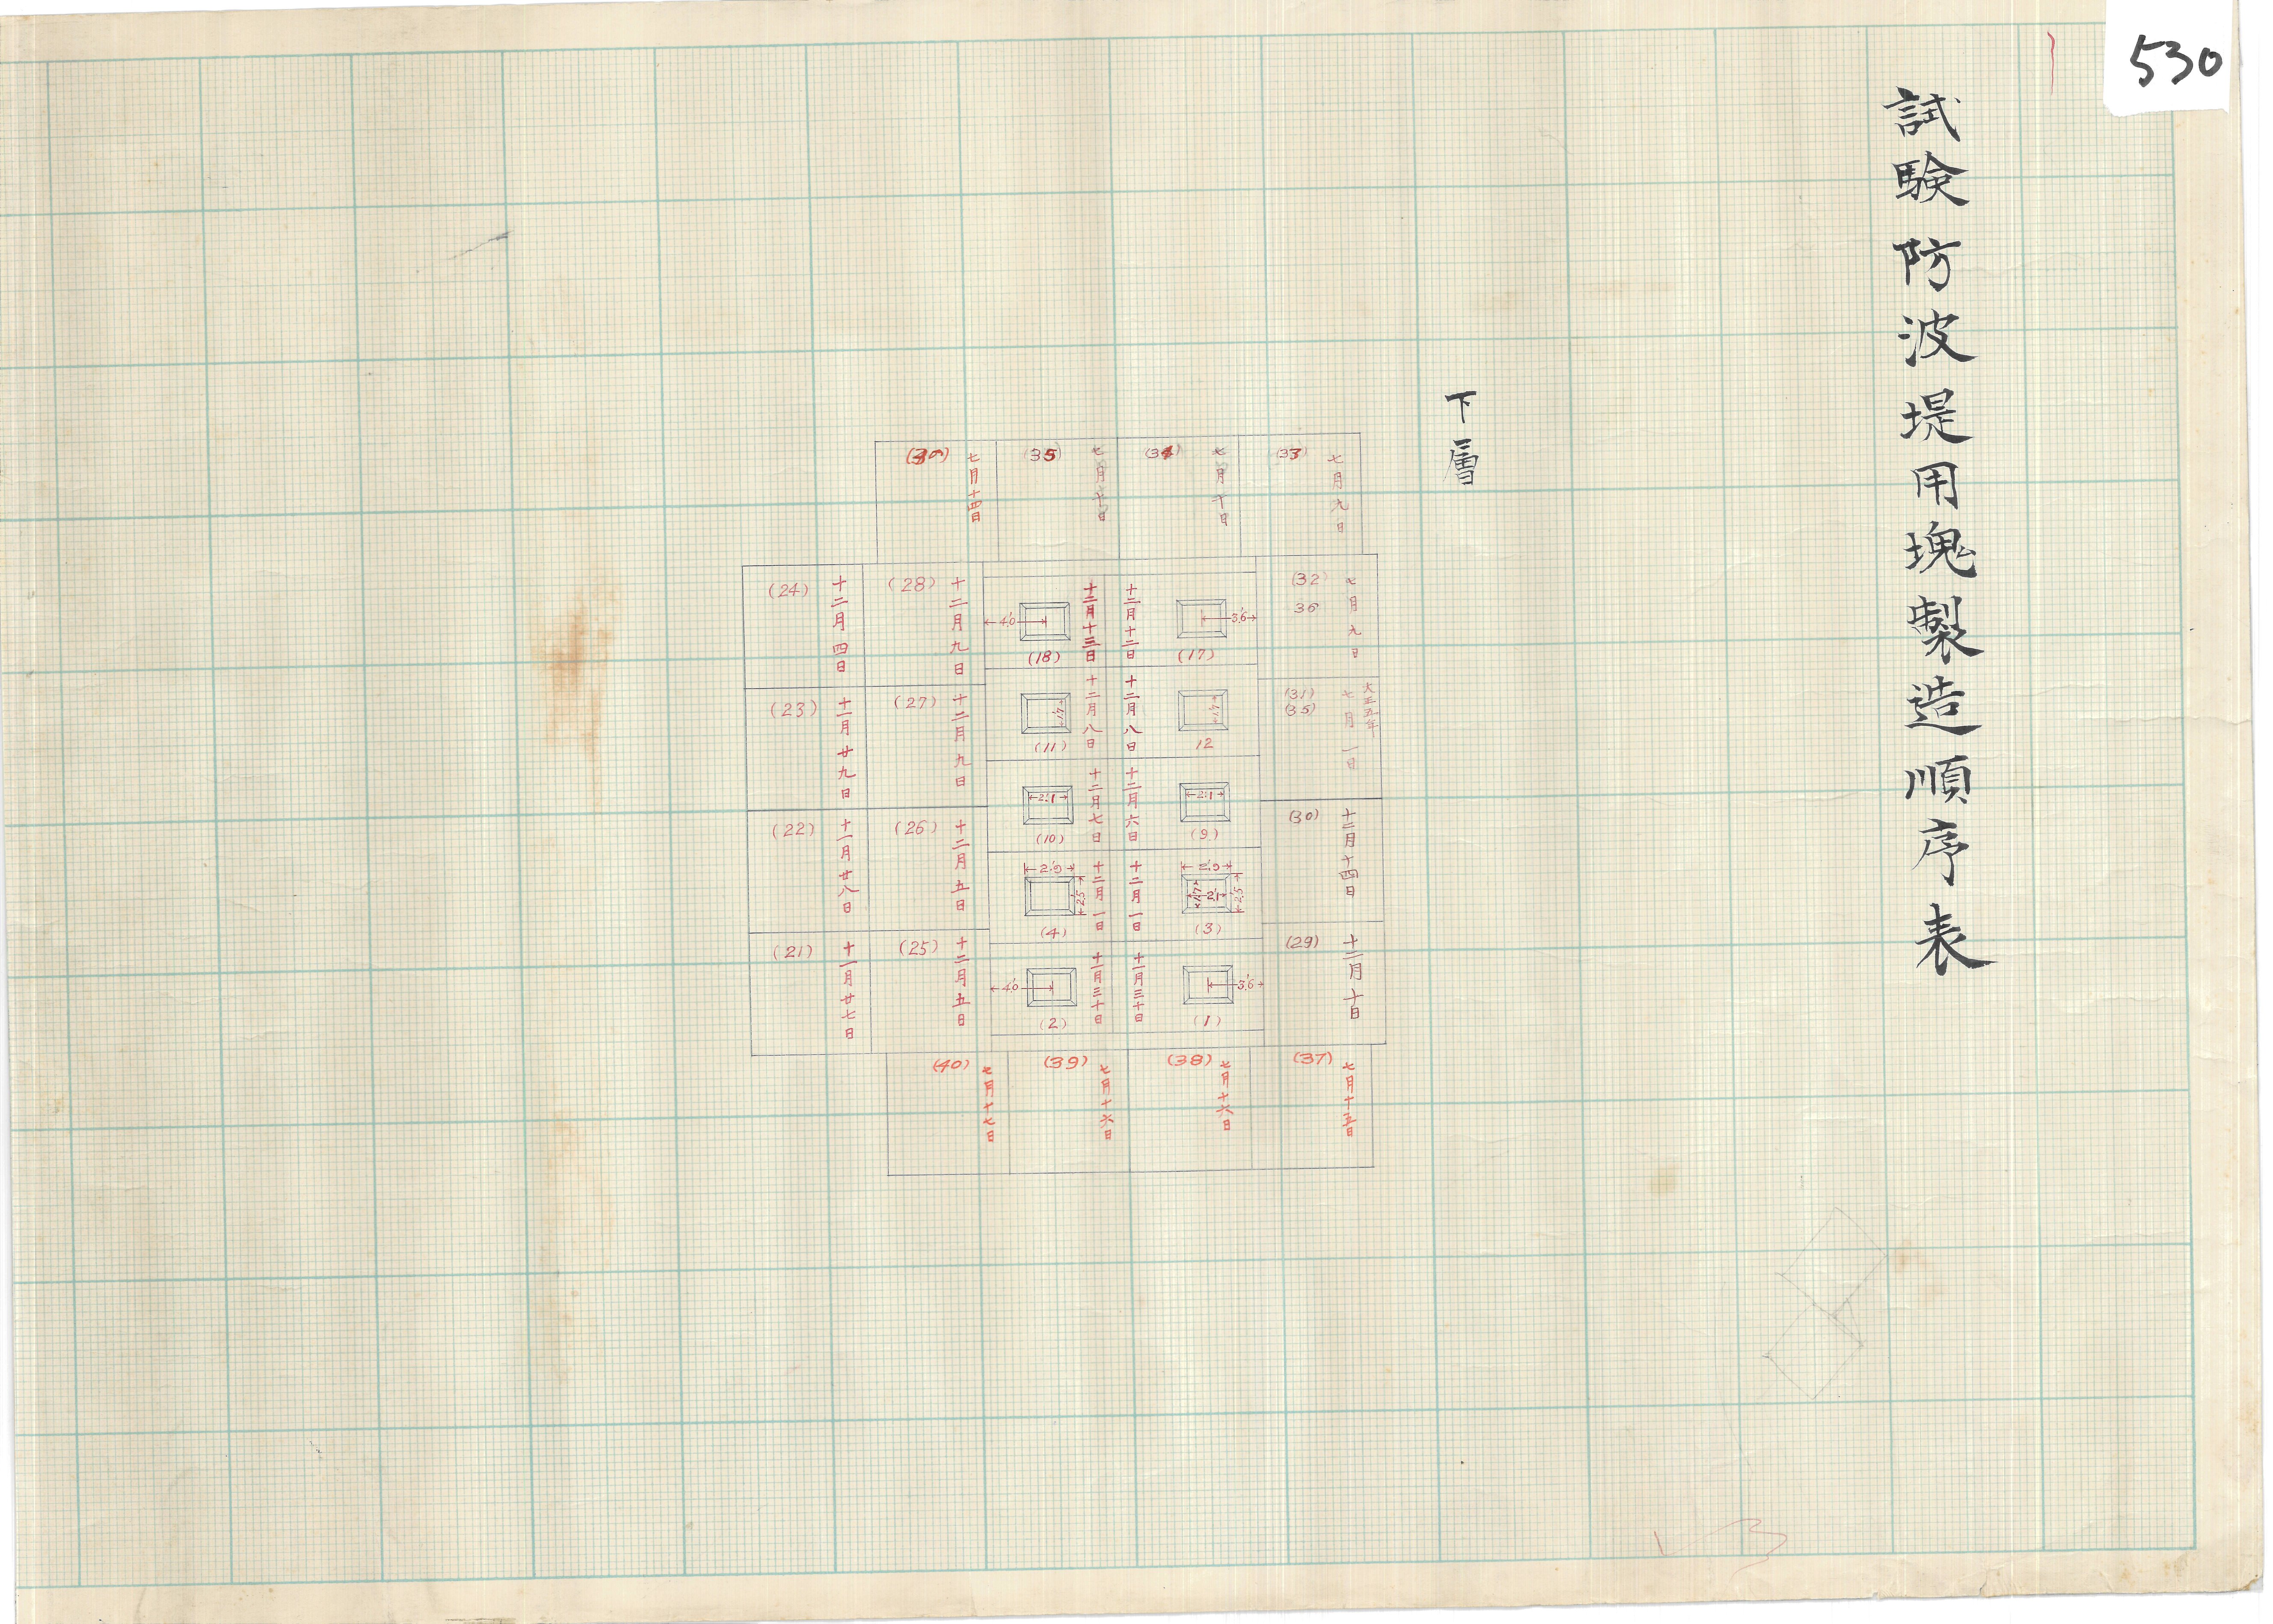 530
試験防波堤用塊製造順序表
下層
(33)
七月九日
(34)
七月十日
(35)
七月十日
七月十四日
(32)
36
七月九日
(31)
(35)
大正五年
七月一日
(30)
十二月十四日
(29)
十二月十日
十二月十二日
3'.6
(17)
十二月十三日
4'.0
(18)
十二月八日
1'.7
12
十二月八日
1'.7
(11)
十二月六日
2'.1
(9)
十二月七日
2'.1
(10)
十二月一日
2'.9
2'.5
1'.7
2'.1
(3)
十二月一日
2'.9
2'.5
(4)
十一月三十日
3'.6
(1)
十一月三十日
4'.0
(2)
(28)
十二月九日
(27)
十二月九日
(26)
十二月五日
(25)
十二月五日
(24)
十二月四日
(23)
十一月廿九日
(22)
十一月廿八日
(21)
十一月廿七日
(37)
七月十五日
(38)
七月十六日
(39)
七月十六日
(40)
七月十七日